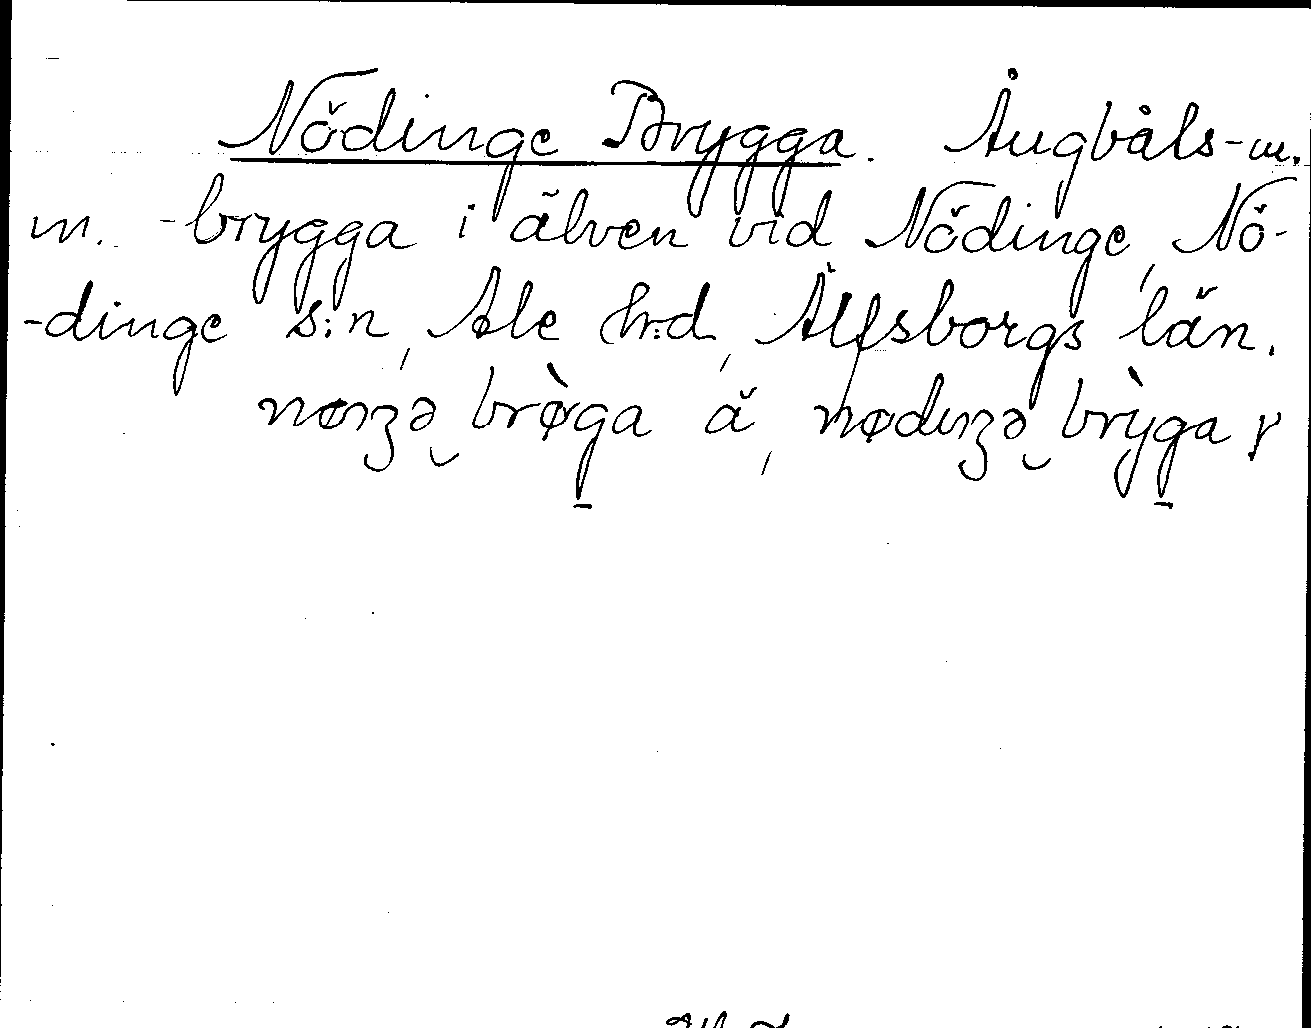 Nödinge Brygga. Ångbåts- m.
m. -brygga i älven vid Nödinge, Nö-
-dinge s:n, Ale h:d, Älfsborgs län.
nøŋʒə brø̀ga ä, nødıŋʒə brỳga